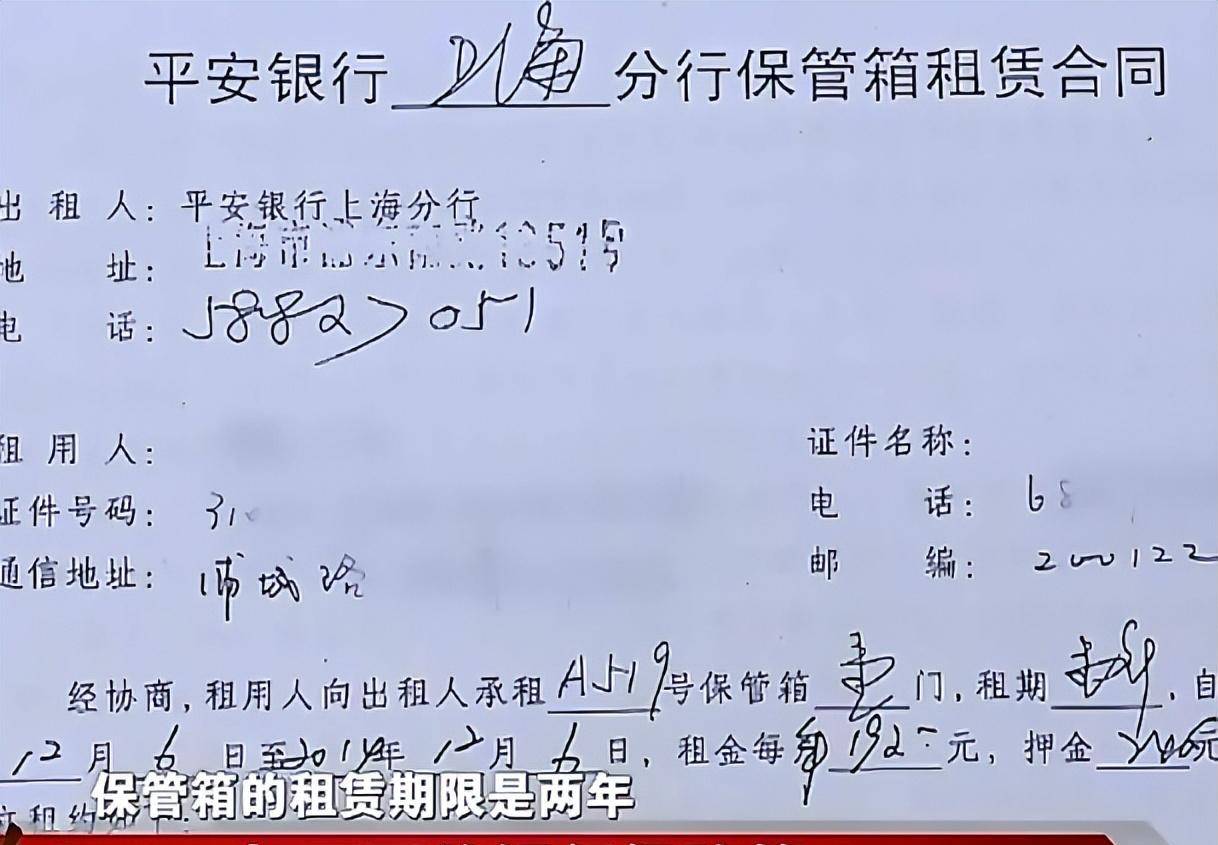 平安银行 上海 分行保管箱租赁合同
出 租 人：平安银行上海分行
地 址：
电 话：58827051
租 用 人：
证件名称：
证件号码：31
电 话：68
通信地址：浦城路
邮 编：200122
经协商，租用人向出租人承租A519号保管箱 壹 门，租期 ，自
12 月 6 日至2019年 12 月 6 日，租金每 192 元，押金 元
立租约如下：
保管箱的租赁期限是两年